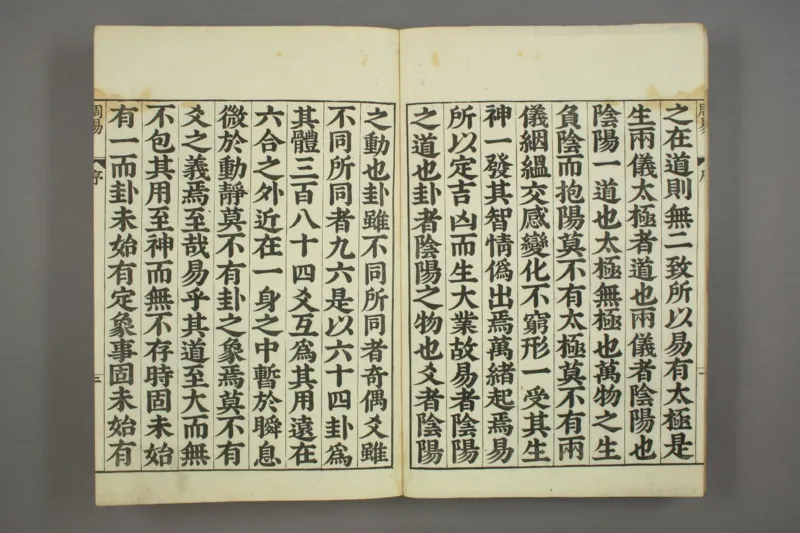 之在道則無二致所以易有太極是
生兩儀太極者道也兩儀者陰陽也
陰陽一道也太極無極也萬物之生
負陰而抱陽莫不有太極莫不有兩
儀絪縕交感變化不窮形一受其生
神一發其智情僞出焉萬緒起焉易
所以定吉凶而生大業故易者陰陽
之道也卦者陰陽之物也爻者陰陽
之動也卦雖不同所同者奇偶爻雖
不同所同者九六是以六十四卦爲
其體三百八十四爻互爲其用遠在
六合之外近在一身之中暫於瞬息
微於動靜莫不有卦之象焉莫不有
爻之義焉至哉易乎其道至大而無
不包其用至神而無不存時固未始
有一而卦未始有定象事固未始有
周易 序 二